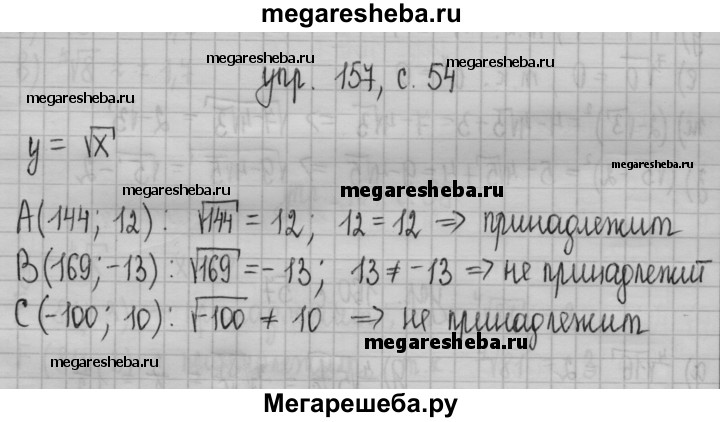 megaresheba.ru
megaresheba.ru
megaresheba.ru
упр. 157, с. 54
megaresheba.ru
y = √x
megaresheba.ru
megaresheba.ru
megaresheba.ru
A(144; 12): √144 = 12; 12 = 12 => принадлежит
B(169; -13): √169 = -13; 13 ≠ -13 => не принадлежит
C(-100; 10): √-100 ≠ 10 => не принадлежит
megaresheba.ru
megaresheba.ru
Мегарешеба.ру